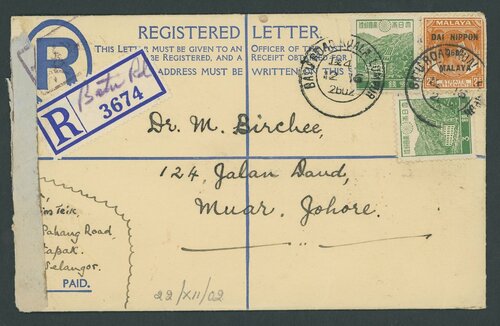 REGISTERED LETTER.
THIS LETTER MUST BE GIVEN TO AN OFFICER OF THE
BE REGISTERED, AND A RECEIPT OBTAINED FOR
ADDRESS MUST BE WRITTEN ON THIS
R
Batu Rd
R 3674
大日本
3
MALAYA
DAI NIPPON
2602
MALAYA
BATU ROAD KUALA LUMPUR
22
2602
3
Dr. M. Birchee,
124, Jalan Daud,
Muar, Johore.
Pahang Road,
tapak.
Selangor.
PAID.
22/XII/02